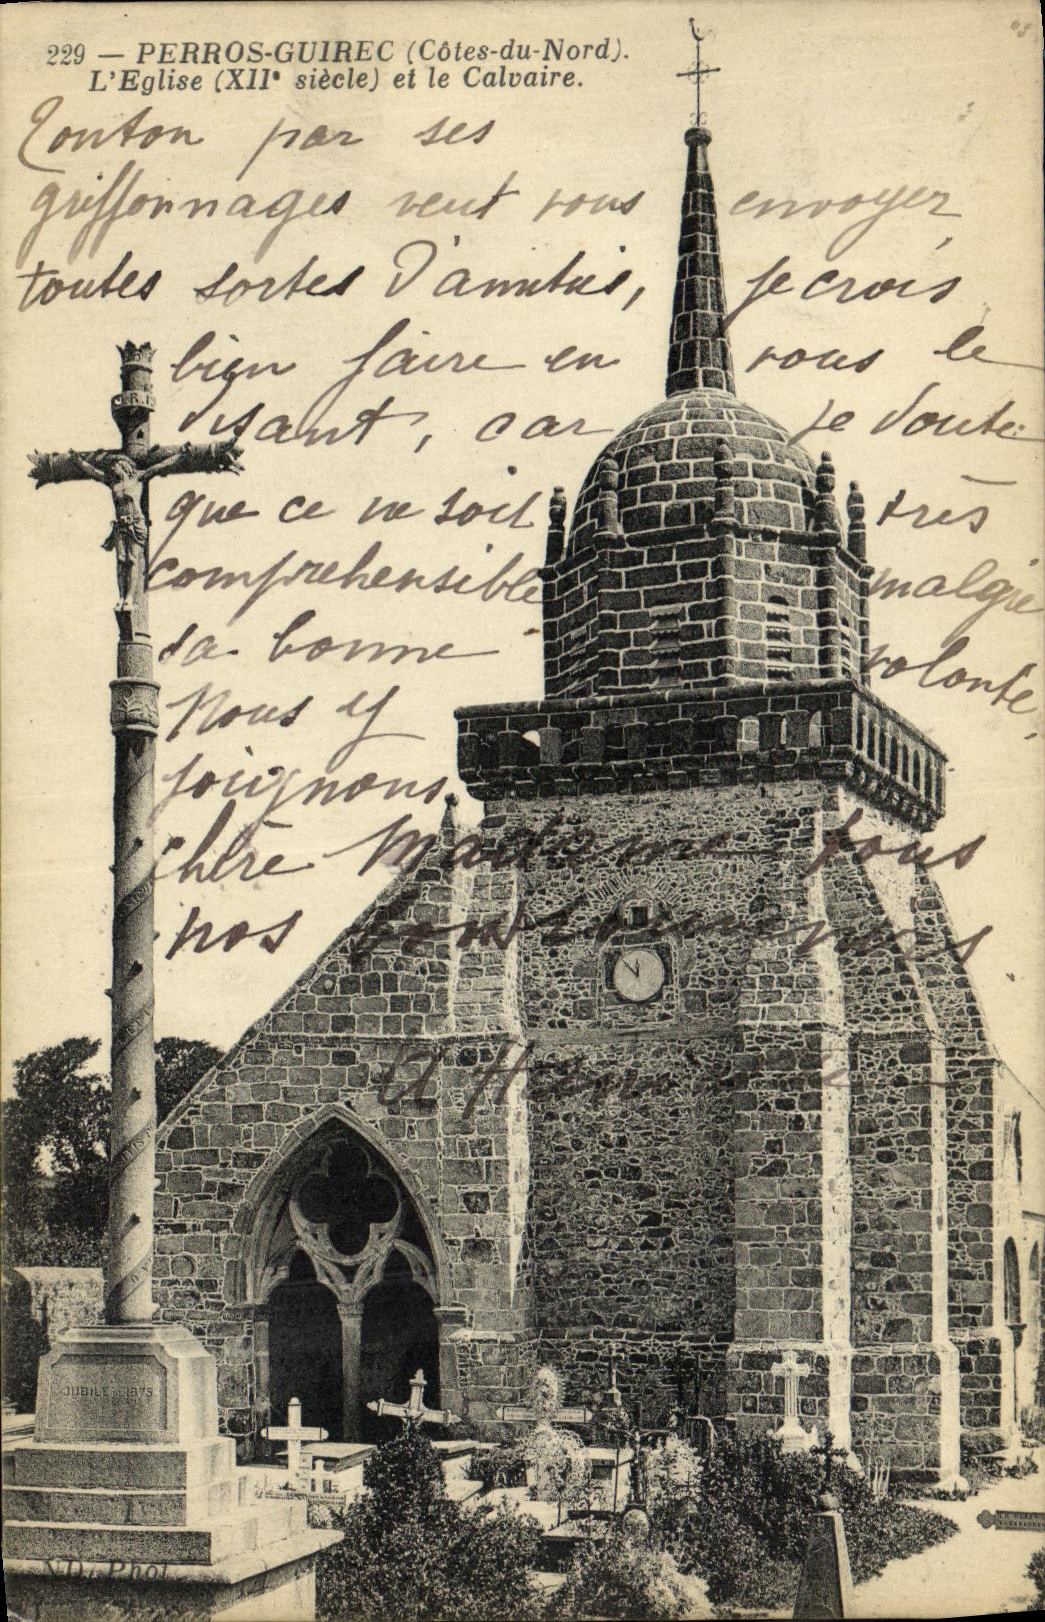 229 — PERROS-GUIREC (Côtes-du-Nord).
L'Eglise (XIIe siècle) et le Calvaire.
Tonton par ses
griffonnages veut vous envoyer
toutes sortes d'amitiés, je crois
bien faire en vous le
disant, car je doute
que ce ne soit très
comprehensible malgré
sa bonne volonté,
Nous y
joignons
chère Madame tous
nos bons souvenirs
JUBILÉ DE 1875
ND. Phot.